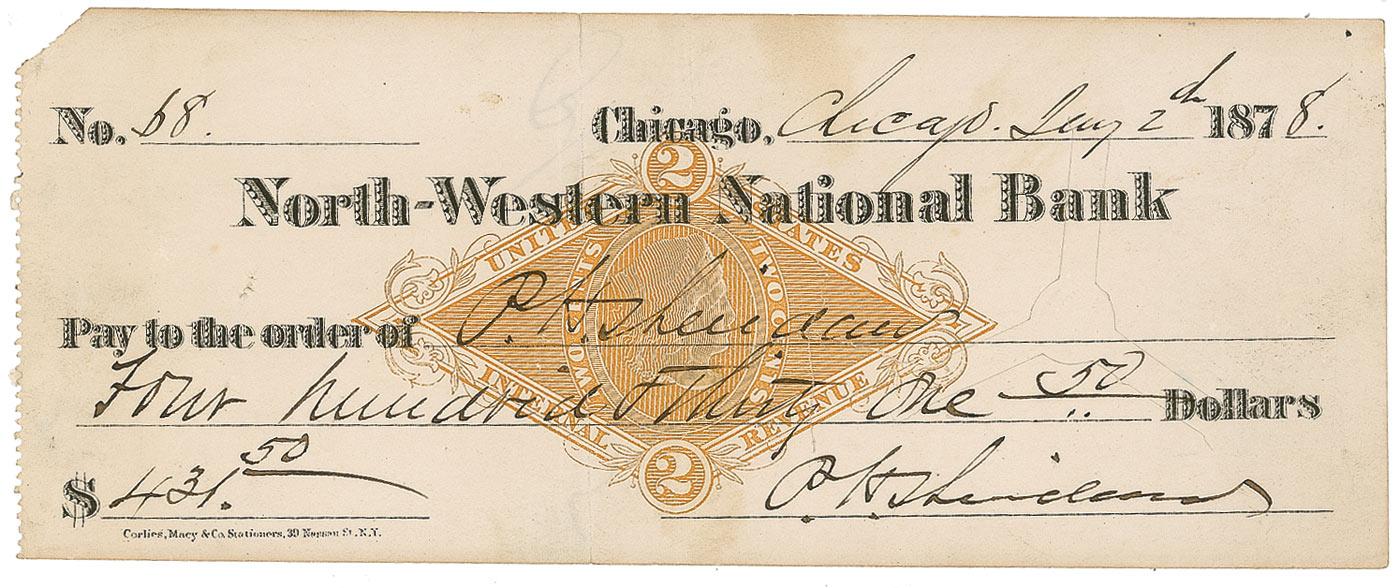 No. 58.
Chicago, Chicago. Jany 2d 1878.
North-Western National Bank
2
UNITED STATES
TWO CENTS
TWO CENTS
Pay to the order of P. H. Sheridan
Four hundred & Thirty One 50 Dollars
INTERNAL REVENUE
2
$ 431.50
P. H. Sheridan
Corlies, Macy & Co. Stationers, 39 Nassau St. N.Y.